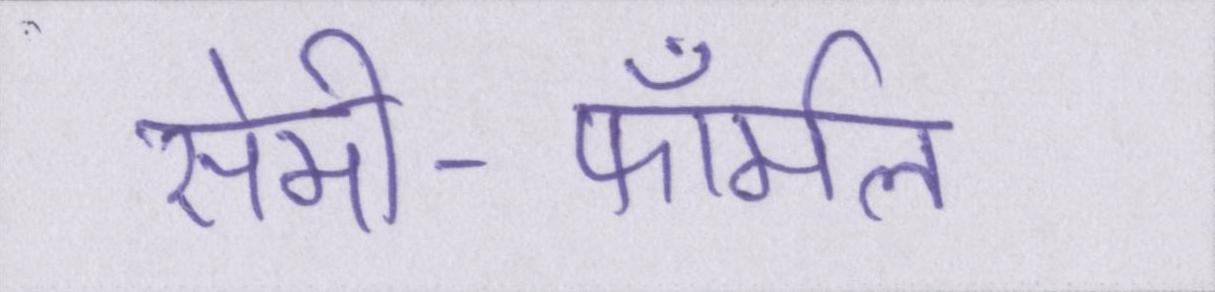 सेमी-फॉर्मल